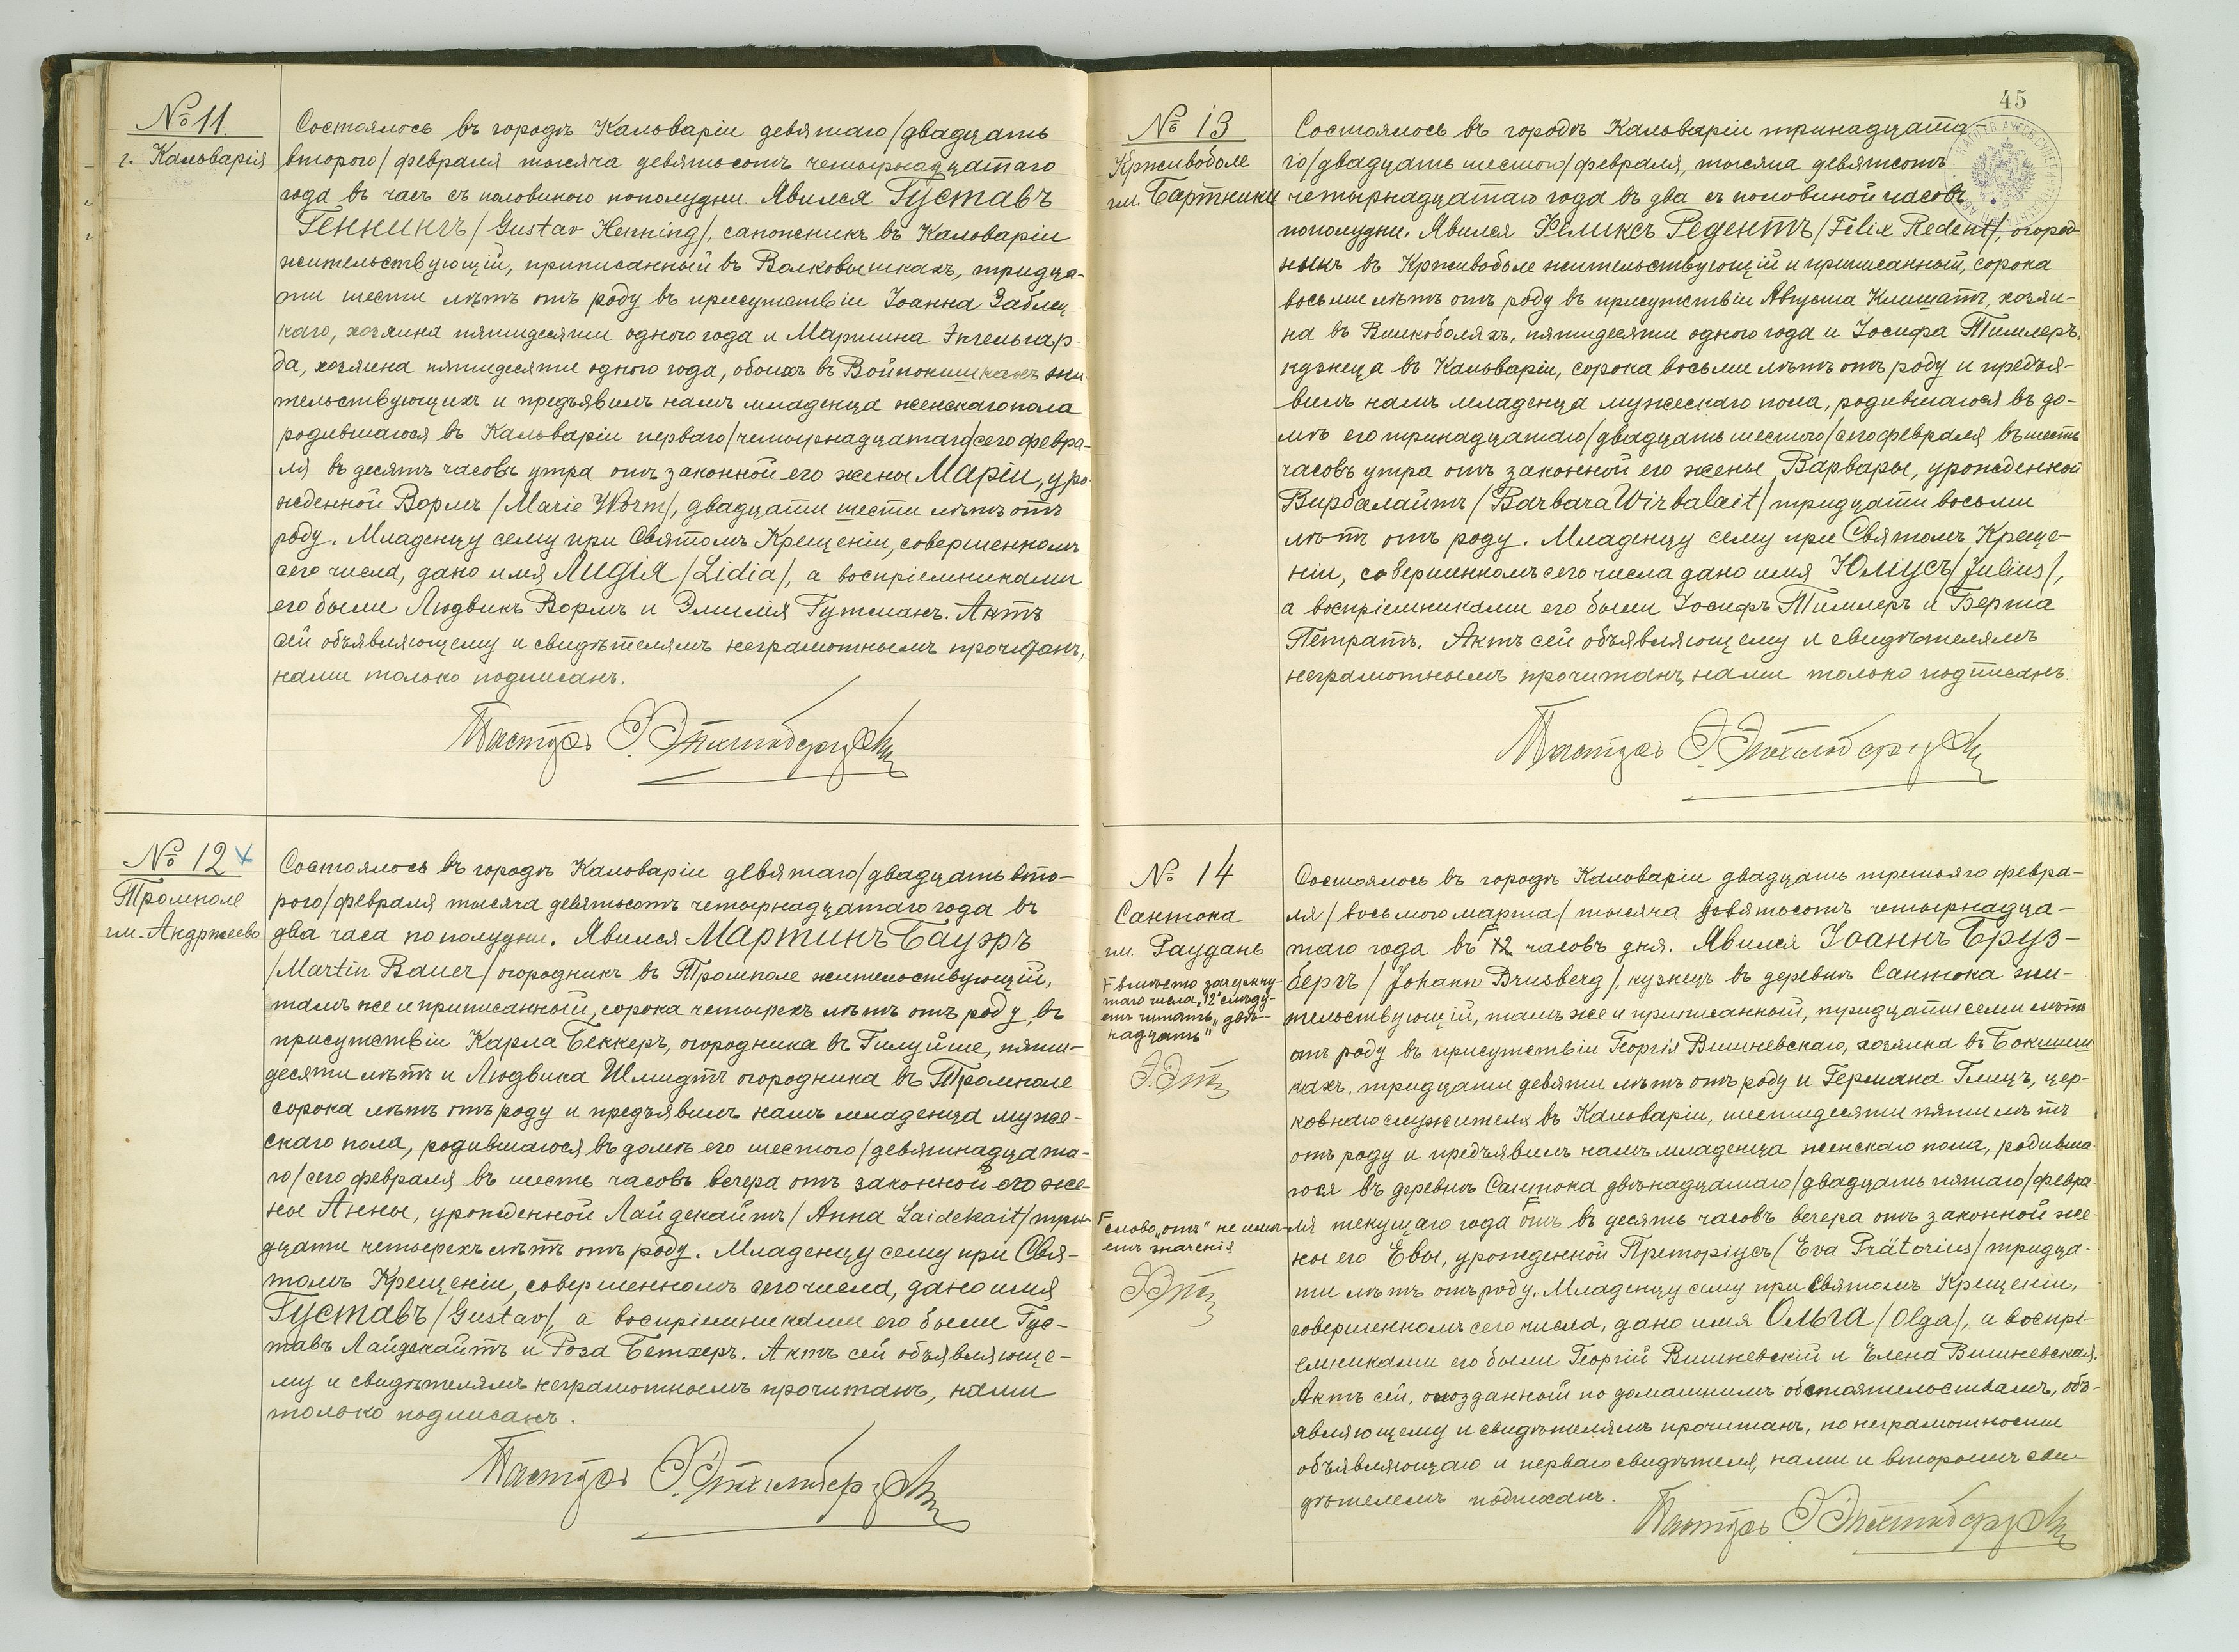 № 11.
г. Кальварія
Состоялось въ городѣ Кальваріи девятаго/двадцать
второго/февраля тысяча девятьсотъ четырнадцатаго
года въ часъ съ половиною пополудни. Явился Густавъ
Геннингъ/Gustav Henning/, сапожникъ въ Кальваріи
жительствующій, приписанный въ Волковышкахъ, тридца-
ти шести лѣтъ отъ роду въ присутствіи Іоанна Заблец-
каго, хозяина пятидесяти одного года и Мартина Энгельгар-
да, хозяина пятидесяти одного года, обоихъ въ Войпонишкахъ жи-
тельствующихъ и предъявилъ намъ младенца женскаго пола
родившагося въ Кальваріи перваго/четырнадцатаго/сего февра-
ля въ десять часовъ утра отъ законной его жены Маріи, уро-
жденной Вормъ/Marie Worm/, двадцати шести лѣтъ отъ
роду. Младенцу сему при Святомъ Крещеніи, совершенномъ
сего числа, дано имя Лидія/Lidia/, а воспріемниками
его были Людвикъ Вормъ и Эмилія Гутманъ. Актъ
сей объявляющему и свидѣтелямъ неграмотнымъ прочитанъ,
нами только подписанъ.
Пасторъ
№ 12
Тромполе
гм. Андржеево
Состоялось въ городѣ Кальваріи девятаго/двадцать вто-
рого/февраля тысяча девятьсотъ четырнадцатаго года въ
два часа пополудни. Явился Мартинъ Бауэръ
/Martin Bauer/огородникъ въ Тромполе жительствующій,
тамъ же и приписанный, сорока четырехъ лѣтъ отъ роду, въ
присутствіи Карла Беккеръ, огородника въ Гилуйше, пяти-
десяти лѣтъ и Людвика Шмидтъ огородника въ Тромполе
сорока лѣтъ отъ роду и предъявилъ намъ младенца муже-
скаго пола, родившагося въ домѣ его шестого/девятнадцата-
го/сего февраля въ шесть часовъ вечера отъ законной его же-
ны Анны, урожденной Лайдекайтъ/Anna Laidekait/три-
дцати четырехъ лѣтъ отъ роду. Младенцу сему при Свя-
томъ Крещеніи, совершенномъ сего числа, дано имя
Густавъ/Gustav/, а воспріемниками его были Гус-
тавъ Лайдекайтъ и Роза Бетхеръ. Актъ сей объявляюще-
му и свидѣтелямъ неграмотнымъ прочитанъ, нами
только подписанъ.
Пасторъ
45
№ 13
Крживоболе
гм. Бартники
Состоялось въ городѣ Кальваріи тринадцата
го/двадцать шестого/февраля, тысяча девятсотъ
четырнадцатаго года въ два съ половиной часовъ
пополудни. Явился Феликсъ Редентъ/Felix Redent/, огород-
никъ въ Крживоболе жительствующій и приписанный, сорока
восьми лѣтъ отъ роду въ присутствіи Августа Климатъ, хозяи-
на въ Вилкоболяхъ, пятидесяти одного года и Іосифа Тиммлеръ,
кузнеца въ Кальваріи, сорока восьми лѣтъ отъ роду и предъя-
вилъ намъ младенца мужескаго пола, родившагося въ до-
мѣ его тринадцатаго/двадцать шестого/сего февраля въ шесть
часовъ утра отъ законной его жены Варвары, урожденной
Вирбалайтъ/Barbara Wirbalait/тридцати восьми
лѣтъ отъ роду. Младенцу сему при Святомъ Креще-
ніи, совершенномъ сего числа дано имя Юліусъ/Julius/,
а воспріемниками его были Іосифъ Тиммлеръ и Берта
Петратъ. Актъ сей объявляющему и свидѣтелямъ
неграмотнымъ прочитанъ, нами только подписанъ.
Пасторъ
№ 14
Сантока
гм. Раудань
вмѣсто зачеркну-
таго числа „12" слѣду-
етъ читать „двѣ-
надцать"
слово „отъ" не имѣ-
етъ значенія
Состоялось въ городѣ Кальваріи двадцать третьяго февра-
ля/восьмого марта/тысяча девятьсотъ четырнадца-
таго года въ 12 часовъ дня. Явился Іоаннъ Бруз-
бергъ/Johann Brusberg/, кузнецъ въ деревнѣ Сантока жи-
тельствующій, тамъ же и приписанный, тридцати семи лѣтъ
отъ роду въ присутствіи Георгія Вишневскаго, хозяина въ Бокшиш
кахъ, тридцати девяти лѣтъ отъ роду и Германа Глицъ, цер-
ковнаго служителя въ Кальваріи, шестидесяти пяти лѣтъ
отъ роду и предъявилъ намъ младенца женскаго пола, родивша-
гося въ деревнѣ Сантока двѣнадцатаго/двадцать пятаго/февра-
ля текущаго года отъ въ десять часовъ вечера отъ законной же-
ны его Евы, урожденной Преторіусъ/Eva Prätorius/тридца-
ти лѣтъ отъ роду. Младенцу сему при Святомъ Крещеніи,
совершенномъ сего числа, дано имя Ольга/Olga/, а воспрі-
емниками его были Георгій Вишневскій и Елена Вишневская.
Актъ сей, опозданный по домашнимъ обстоятельствамъ, объ-
являющему и свидѣтелямъ прочитанъ, по неграмотности
объявляющаго и перваго свидѣтеля, нами и вторымъ сви-
дѣтелемъ подписанъ.
Пасторъ